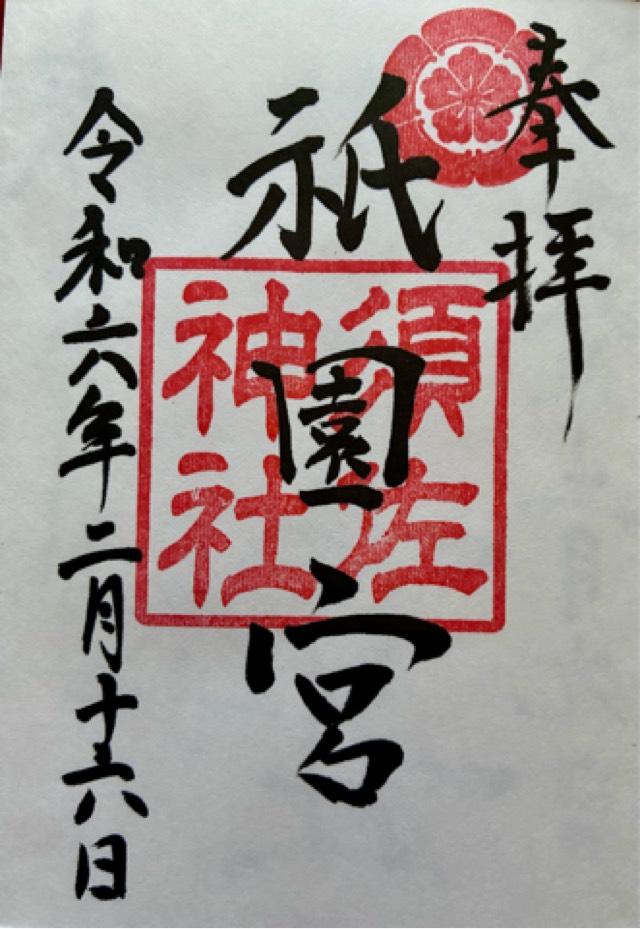 奉拝
祇園宮
須佐
神社
令和六年二月十六日